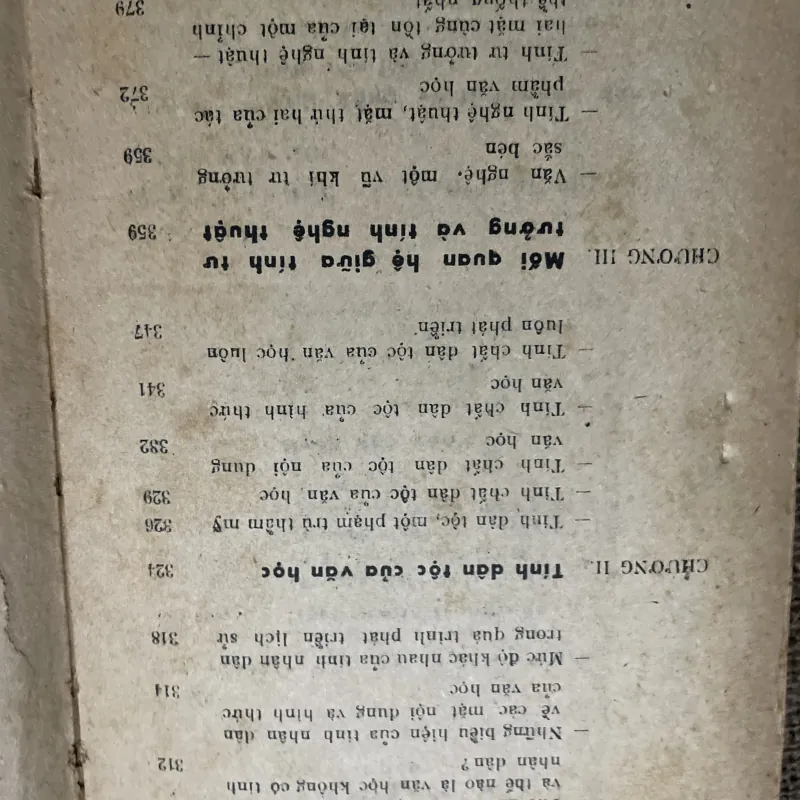 và thế nào là văn học không có tính
nhân dân? 312
— Những biểu hiện của tính nhân dân
về các mặt nội dung và hình thức
của văn học 314
— Mức độ khác nhau của tính nhân dân
trong quá trình phát triển lịch sử 318
CHƯƠNG II. Tính dân tộc của văn học 324
— Tính dân tộc, một phạm trù thẩm mỹ 326
— Tính chất dân tộc của văn học 329
— Tính chất dân tộc của nội dung
văn học 332
— Tính chất dân tộc của hình thức
văn học 341
— Tính chất dân tộc của văn học luôn
luôn phát triển 347
CHƯƠNG III. Mối quan hệ giữa tính tư
tưởng và tính nghệ thuật 359
— Văn nghệ, một vũ khí tư tưởng
sắc bén 359
— Tính nghệ thuật, mặt thứ hai của tác
phẩm văn học 372
— Tính tư tưởng và tính nghệ thuật —
hai mặt cùng tồn tại của một chỉnh
thể thống nhất 379